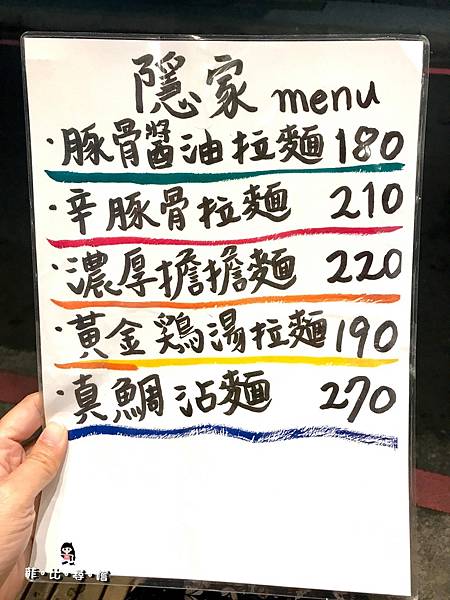 隱家 menu
·豚骨醬油拉麵 180
·辛豚骨拉麵 210
·濃厚擔擔麵 220
·黃金鶏湯拉麵 190
·真鯛沾麵 270
菲·比·尋·禮